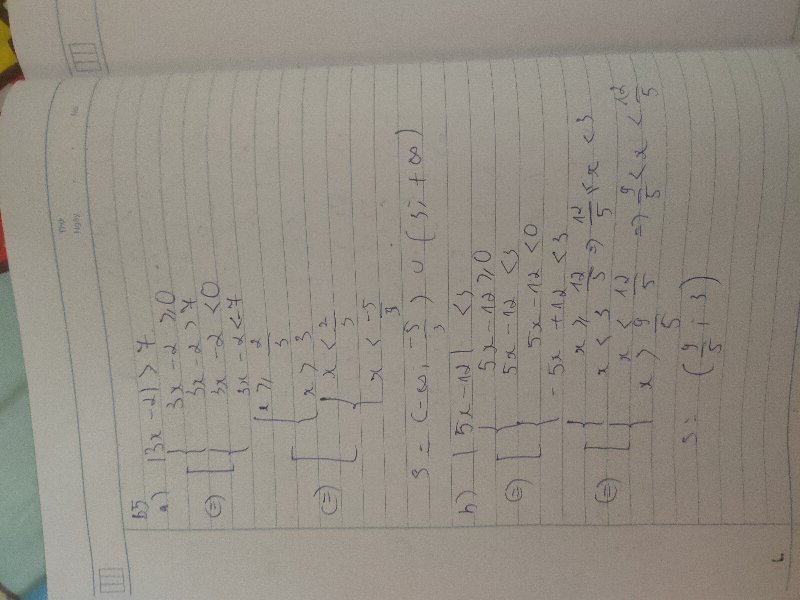 Thứ
Ngày . . No.
b5
a) |3x - 2| > 7
3x - 2 ⩾ 0
(=) [ { 3x - 2 > 7
3x - 2 < 0
{ 3x - 2 < -7
{ x ⩾ 2/3
(=) [ { x > 3
{ x < 2/3
{ x < -5/3
S = (-∞; -5/3) ∪ (3; +∞)
b) | 5x - 12 | < 3
5x - 12 ⩾ 0
(=) [ { 5x - 12 < 3
5x - 12 < 0
{ -5x + 12 < 3
{ x ⩾ 12/5 => 12/5 ⩽ x < 3
(=) [ { x < 3
{ x < 12/5 => 9/5 < x < 12/5
{ x > 9/5
S = (9/5; 3)